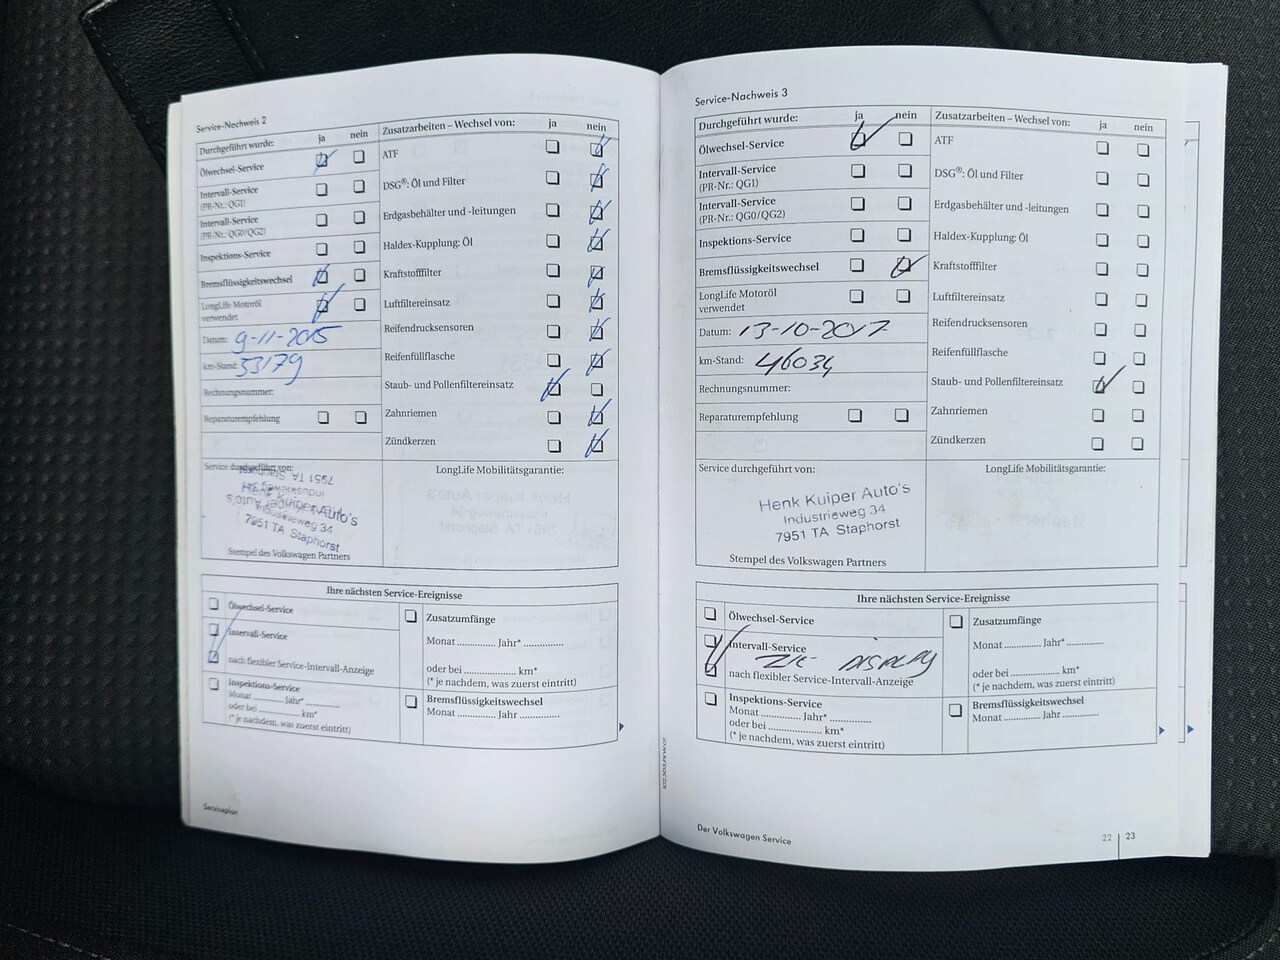 Service-Nachweis 2
Durchgeführt wurde: ja nein
Ölwechsel-Service
Intervall-Service
(PR-Nr.: QG1)
Intervall-Service
(PR-Nr.: QG0/QG2)
Inspektions-Service
Bremsflüssigkeitswechsel
LongLife Motoröl
verwendet
Datum: 9-11-2015
km-Stand: 33179
Rechnungsnummer:
Reparaturempfehlung
Zusatzarbeiten – Wechsel von: ja nein
ATF
DSG®: Öl und Filter
Erdgasbehälter und -leitungen
Haldex-Kupplung: Öl
Kraftstofffilter
Luftfiltereinsatz
Reifendrucksensoren
Reifenfüllflasche
Staub- und Pollenfiltereinsatz
Zahnriemen
Zündkerzen
Service durchgeführt von:
Henk Kuiper Auto's
Industrieweg 34
7951 TA Staphorst
Stempel des Volkswagen Partners
LongLife Mobilitätsgarantie:
Ihre nächsten Service-Ereignisse
Ölwechsel-Service
Intervall-Service
nach flexibler Service-Intervall-Anzeige
Inspektions-Service
Monat ............ Jahr* ............
oder bei ............ km*
(* je nachdem, was zuerst eintritt)
Zusatzumfänge
Monat ............ Jahr* ............
oder bei ............ km*
(* je nachdem, was zuerst eintritt)
Bremsflüssigkeitswechsel
Monat ............ Jahr ............
Serviceplan
Service-Nachweis 3
Durchgeführt wurde: ja nein
Ölwechsel-Service
Intervall-Service
(PR-Nr.: QG1)
Intervall-Service
(PR-Nr.: QG0/QG2)
Inspektions-Service
Bremsflüssigkeitswechsel
LongLife Motoröl
verwendet
Datum: 13-10-2017
km-Stand: 46034
Rechnungsnummer:
Reparaturempfehlung
Zusatzarbeiten – Wechsel von: ja nein
ATF
DSG®: Öl und Filter
Erdgasbehälter und -leitungen
Haldex-Kupplung: Öl
Kraftstofffilter
Luftfiltereinsatz
Reifendrucksensoren
Reifenfüllflasche
Staub- und Pollenfiltereinsatz
Zahnriemen
Zündkerzen
Service durchgeführt von:
Henk Kuiper Auto's
Industrieweg 34
7951 TA Staphorst
Stempel des Volkswagen Partners
LongLife Mobilitätsgarantie:
Ihre nächsten Service-Ereignisse
Ölwechsel-Service
Intervall-Service
ZIE DISPLAY
nach flexibler Service-Intervall-Anzeige
Inspektions-Service
Monat ............ Jahr* ............
oder bei ............ km*
(* je nachdem, was zuerst eintritt)
Zusatzumfänge
Monat ............ Jahr* ............
oder bei ............ km*
(* je nachdem, was zuerst eintritt)
Bremsflüssigkeitswechsel
Monat ............ Jahr ............
Der Volkswagen Service
22 | 23